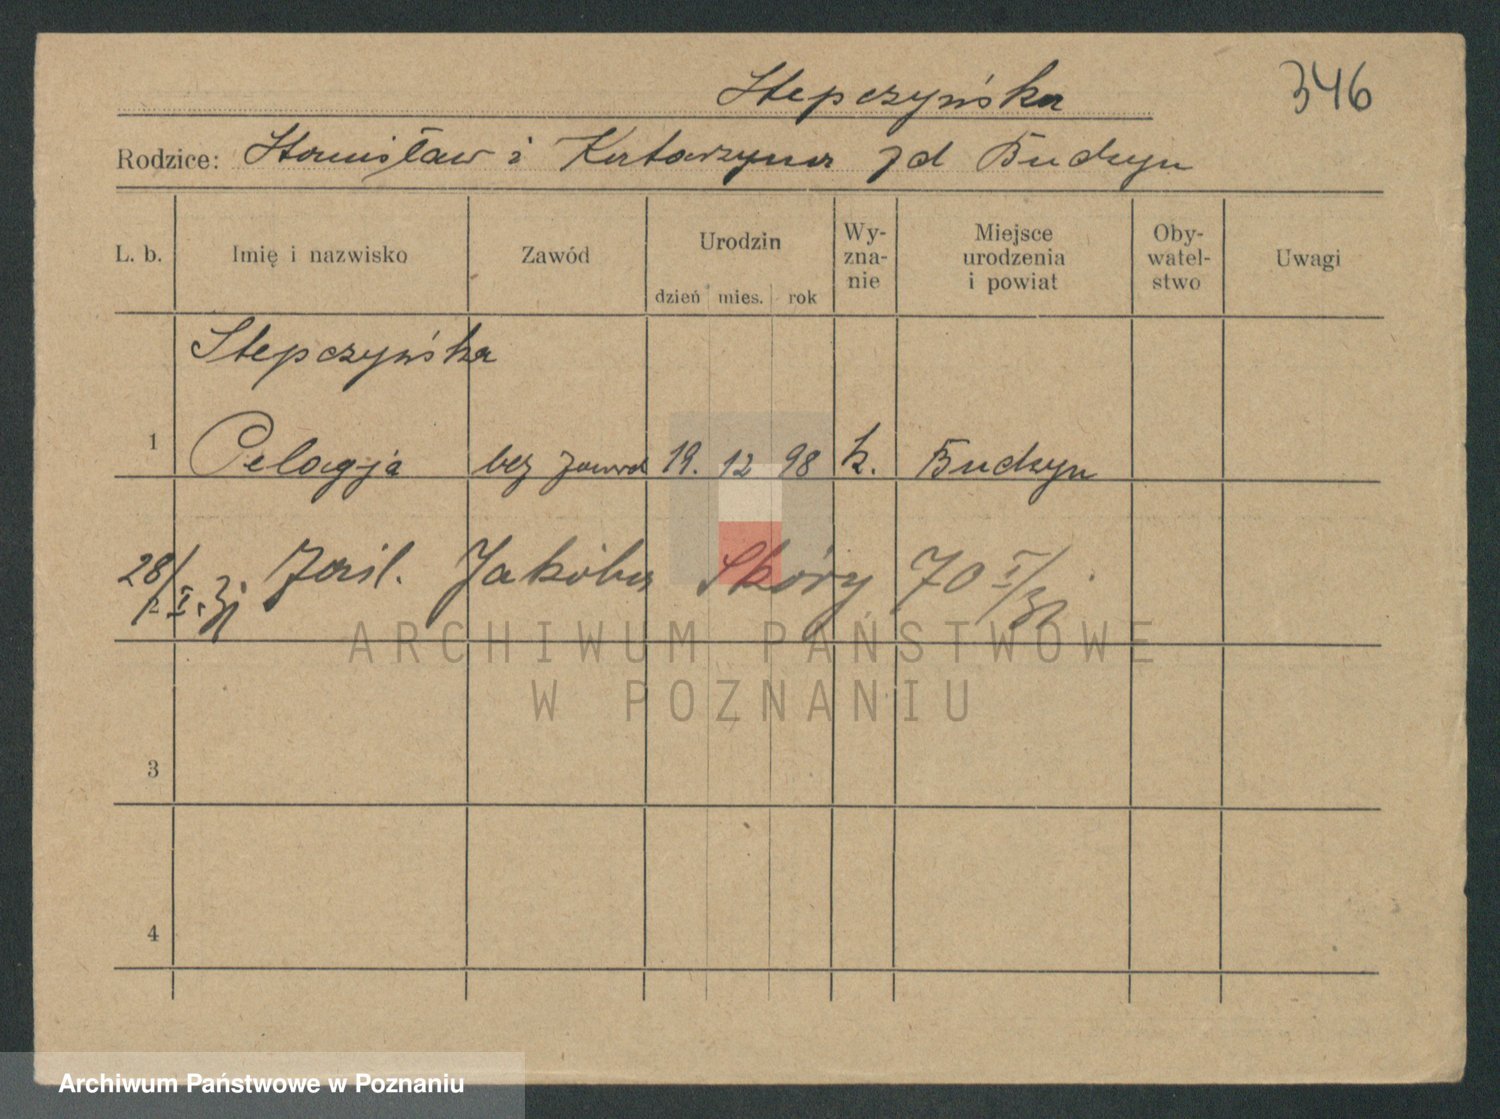 346
Stepczyńska
Rodzice: Stanisław i Katarzyna zd Budzyn
L. b. Imię i nazwisko Zawód Urodzin dzień mies. rok Wy-zna-nie Miejsce urodzenia i powiat Oby-watel-stwo Uwagi
Stepczyńska
1 Pelagja bez zawod 19. 12 98 k. Budzyn
28/I. 31 Jakóba Skóry 70 I/31
2
ARCHIWUM PAŃSTWOWE
W POZNANIU
3
4
Archiwum Państwowe w Poznaniu